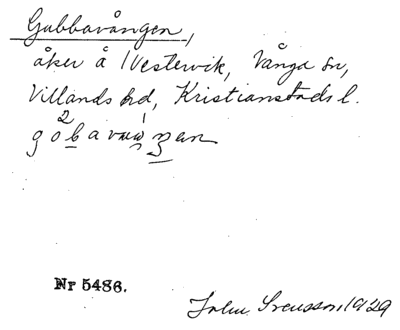 Gubbavången,
åker å Westervik, Vånga sn,
Villands hd, Kristianstads l.
Nr 5486.
John Svensson 1929